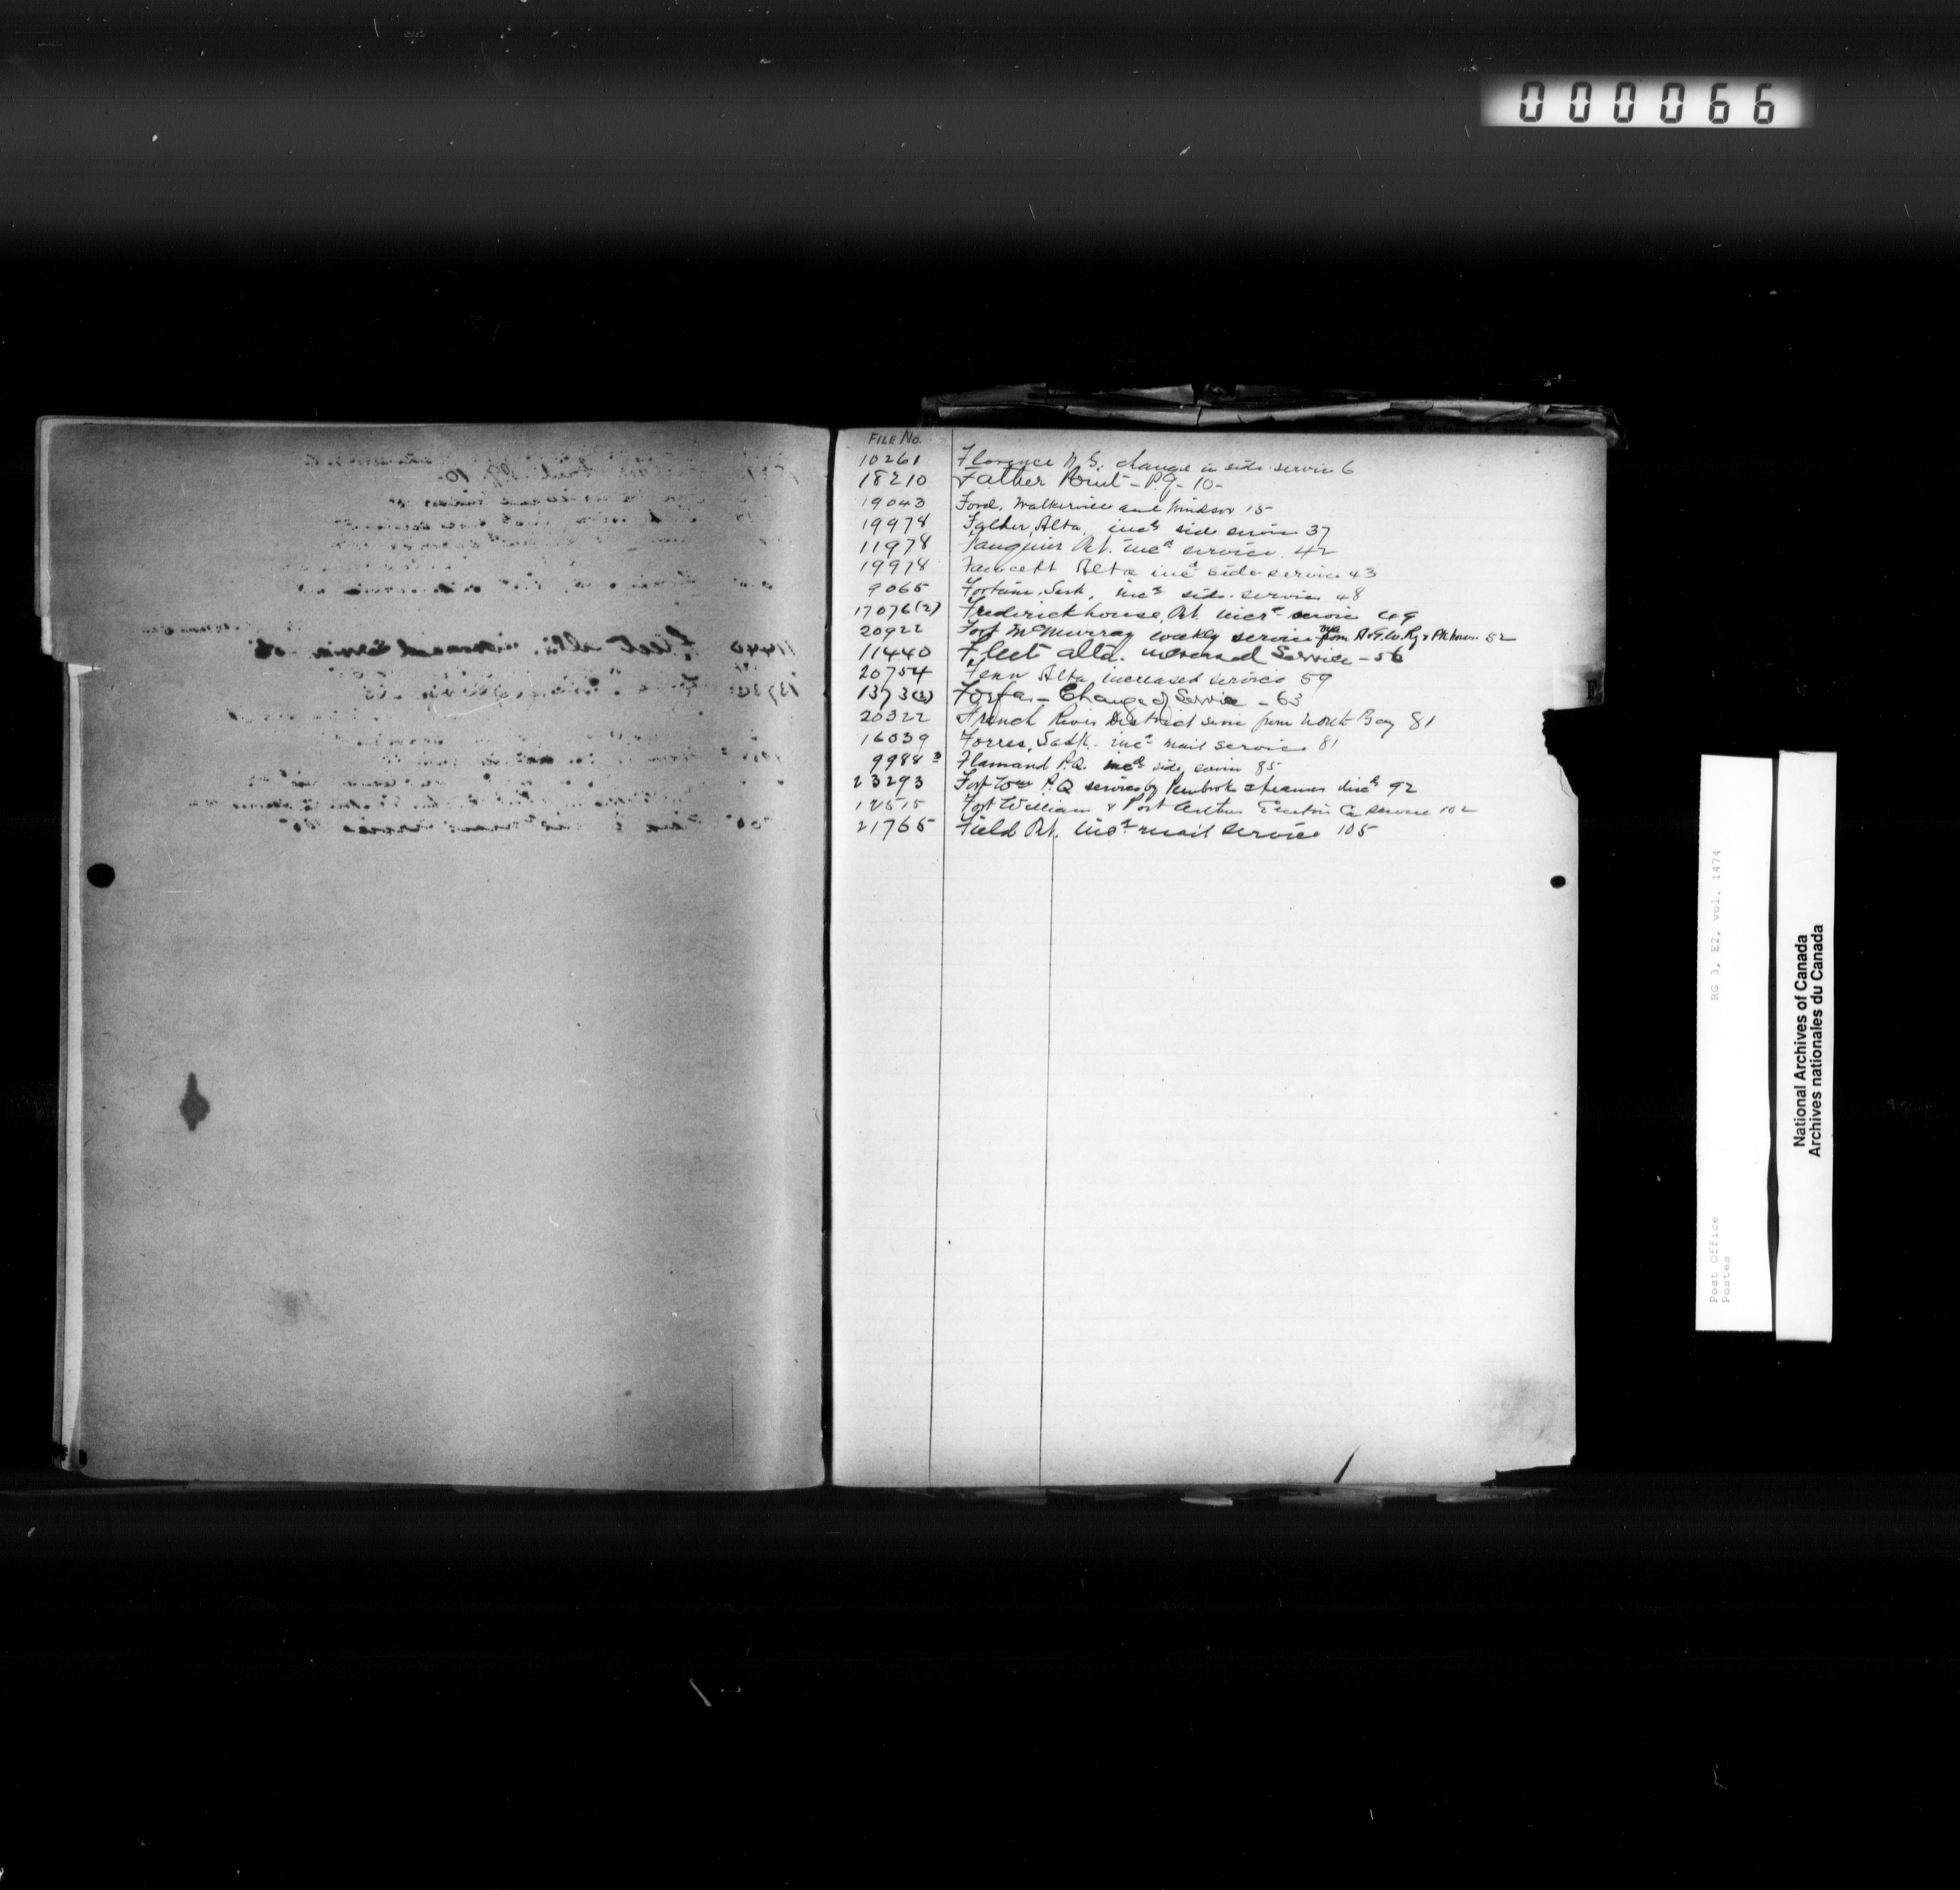 000066
FILE No.
10261 Florence N.S. change in side service 6
18210 Father Point - P.Q. - 10 -
19043 Ford, Walkerville and Windsor 15
19978 Falher, Alta, incd side service 37
11978 Fauquier Ont. incd service 42
19978 Fawcett Alta incd side service 43
9065 Fortune, Sask, incd side service 48
17076(2) Frederickhouse, Ont. incrd service 49
20922 Fort McMurray weekly service from A&G.W. Ry 52
11440 Fleet alta. increased Service - 56
20754 Fenn Alta increased service 59
1373(3) Forfar - Change of Service - 63
20322 French River District service from North Bay 81
16039 Forres, Sask. incd mail service 81
9988 3 Flamand P.Q. incd side service 85
23293 Fort Wm P.Q service by Pembroke steamer discd 92
12515 Fort William & Port Arthur Electric Car service 102
21765 Field Ont. incd mail service 105
RG 3, E2, vol. 1474
Post Office
Postes
National Archives of Canada
Archives nationales du Canada